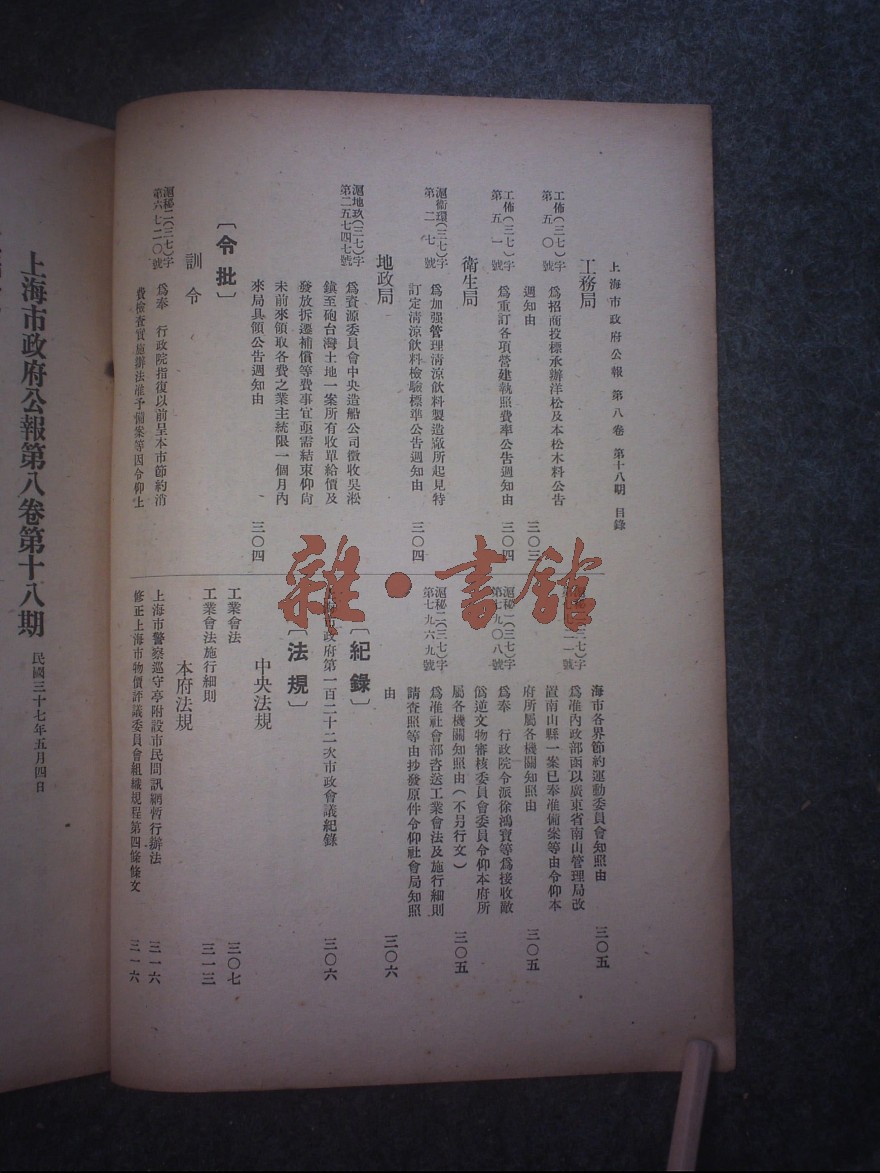 上海市政府公報 第八卷 第十八期 目錄
工務局
工佈(三七)字
第五〇號
爲招商投標承辦洋松及本松木料公告
週知由
三〇三
工佈(三七)字
第五一號
爲重訂各項營建執照費率公告週知由
三〇四
衛生局
滬衛環(三七)字
第二七號
爲加强管理清涼飲料製造廠所起見特
訂定清涼飲料檢驗標準公告週知由
三〇四
地政局
滬地玖(三七)字
第二五七四七號
爲資源委員會中央造船公司徵收吳淞
鎮至砲台灣土地一案所有收單給價及
發放拆遷補償等費事宜亟需結束仰尚
未前來領取各費之業主統限一個月內
來局具領公告週知由
三〇四
〔令批〕
訓令
滬秘二(三七)字
第六七二〇號
爲奉 行政院指復以前呈本市節約消
費檢查實施辦法准予備案等因令仰上
海市各界節約運動委員會知照由
三〇五
滬秘二(三七)字
一一號
爲准內政部函以廣東省南山管理局改
置南山縣一案已奉准備案等由令仰本
府所屬各機關知照由
三〇五
滬秘二(三七)字
第七九〇八號
爲奉 行政院令派徐鴻寶等爲接收敵
僞道文物審核委員會委員令仰本府所
屬各機關知照由(不另行文)
三〇五
滬秘二(三七)字
第七九六九號
爲准社會部咨送工業會法及施行細則
請查照等由抄發原件令仰社會局知照
由
三〇六
〔紀錄〕
上海市政府第一百二十二次市政會議紀錄
三〇六
〔法規〕
中央法規
工業會法
三〇七
工業會法施行細則
三一三
本府法規
上海市警察巡守亭附設市民問訊網暫行辦法
三一六
修正上海市物價評議委員會組織規程第四條條文
三一六
上海市政府公報第八卷第十八期
民國三十七年五月四日
雜·書館